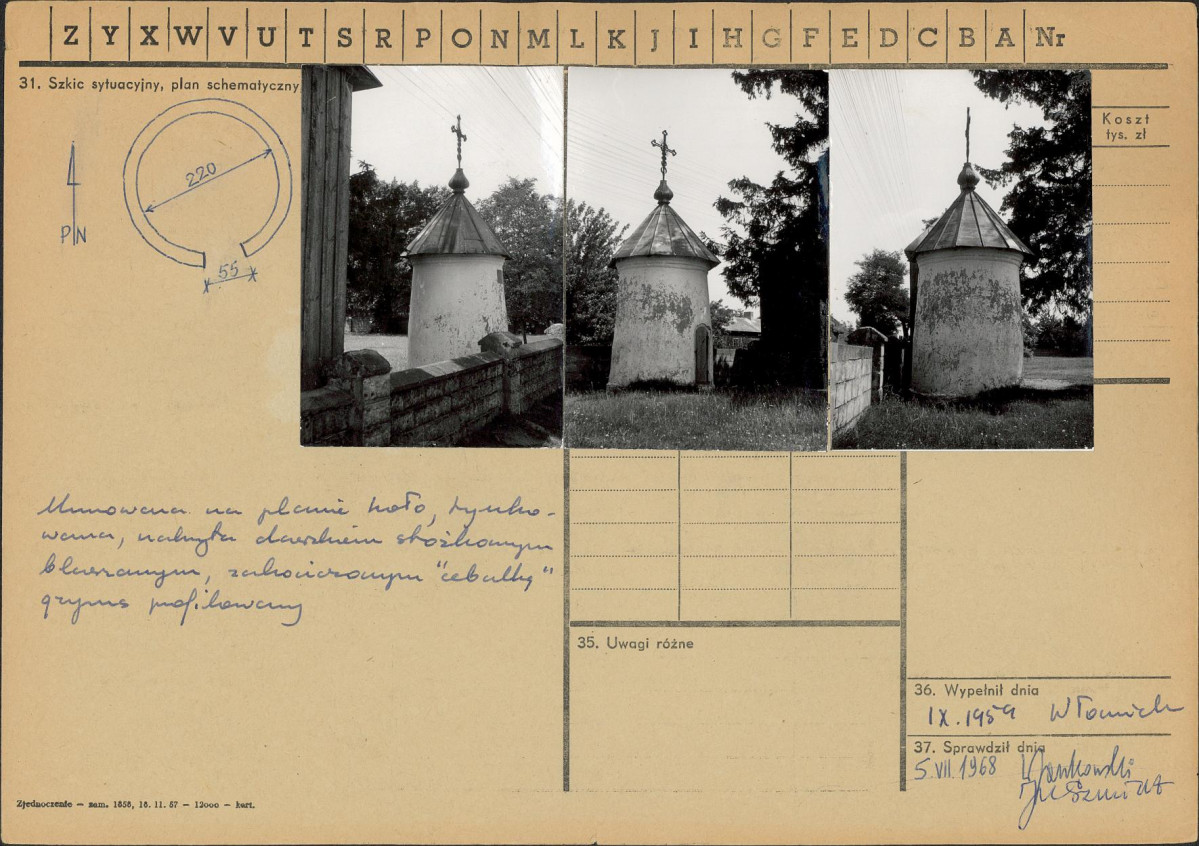 Z Y X W V U T S R P O N M L K J I H G F E D C B A Nr
31. Szkic sytuacyjny, plan schematyczny
Koszt
tys. zł
220
PN
55
Murowana na planie koło, tynko-
wana, nakryta daszkiem stożkowym
blaszanym, zakończonym "cebulką"
gzyms profilowany
35. Uwagi różne
36. Wypełnił dnia
IX.1959
37. Sprawdził dnia
5.VII.1968 Jankowski
Zjednoczenie — zam. 1858, 18. 11. 57 — 12000 — kart.